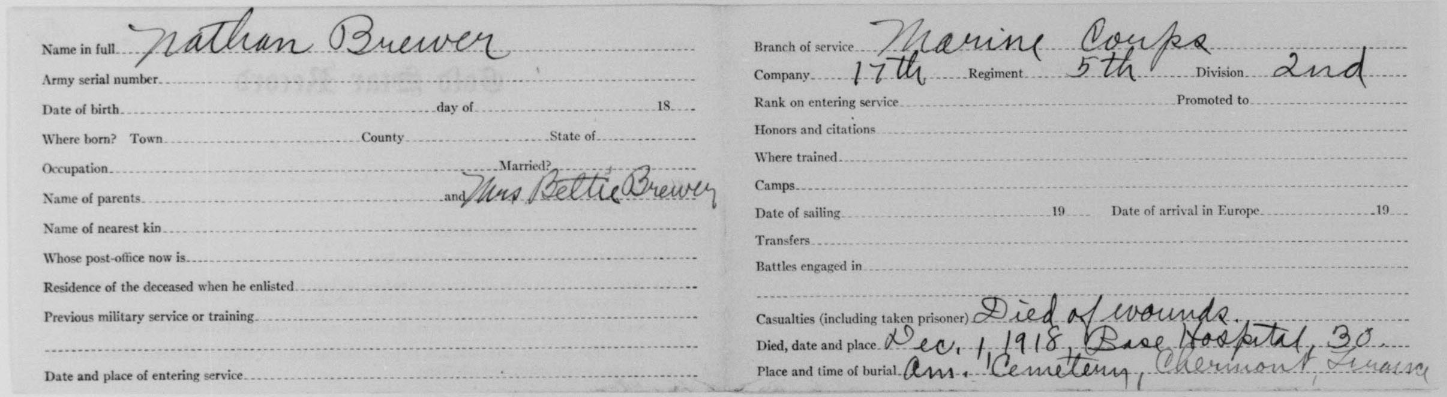 Name in full Nathan Brewer
Army serial number
Date of birth day of 18
Where born? Town County State of
Occupation Married?
Name of parents and Mrs Bettie Brewer
Name of nearest kin
Whose post-office now is
Residence of the deceased when he enlisted
Previous military service or training
Date and place of entering service
Branch of service Marine Corps
Company 17th Regiment 5th Division 2nd
Rank on entering service Promoted to
Honors and citations
Where trained
Camps
Date of sailing 19 Date of arrival in Europe 19
Transfers
Battles engaged in
Casualties (including taken prisoner) Died of wounds.
Died, date and place Dec. 1, 1918, Base Hospital, 30.
Place and time of burial Am. Cemetery, Chermont, France